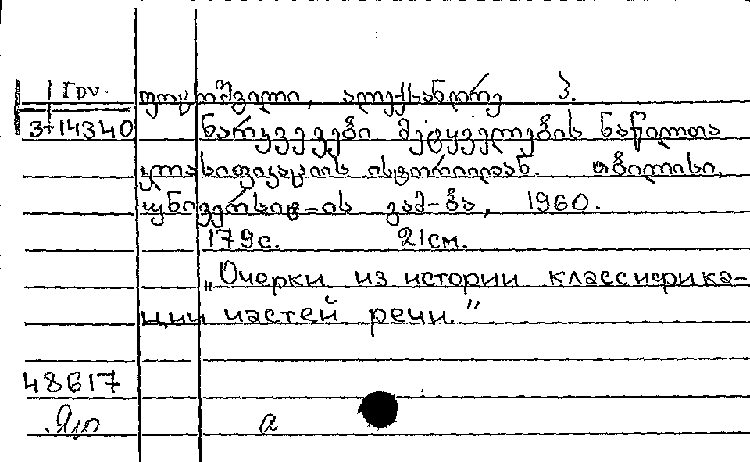 Гру. ფოცხიშვილი, ალექსანდრე პ.
3+14340 ნარკვევები მეტყველების ნაწილთა
კლასიფიკაციის ისტორიიდან. თბილისი,
უნივერსიტ-ის გამ-ბა, 1960.
179с. 21см.
„Очерки из истории классифика-
ции частей речи."
48617
а